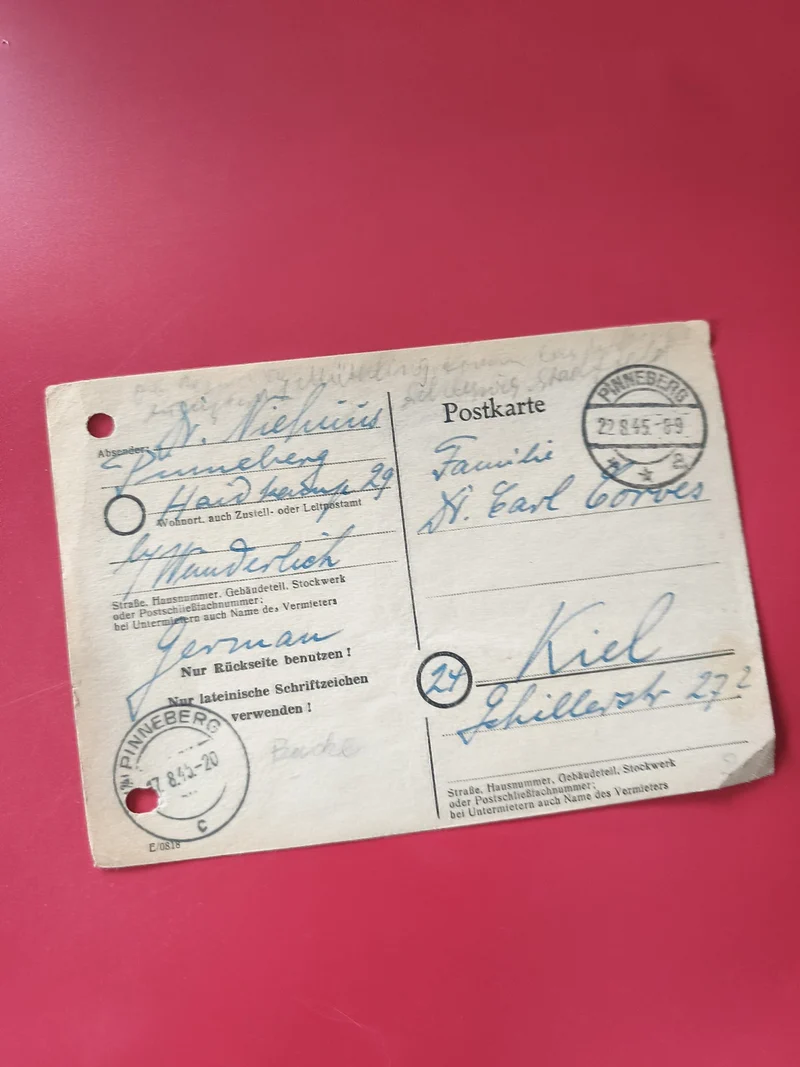 Absender:
Dr. Niehuus
Pinneberg
29
Wohnort, auch Zustell- oder Leitpostamt
b/Wunderlich
Straße, Hausnummer, Gebäudeteil, Stockwerk
oder Postschließfachnummer;
bei Untermietern auch Name des Vermieters
German
Nur Rückseite benutzen!
Nur lateinische Schriftzeichen
verwenden!
PINNEBERG
8.45-20
c
E/0818
Postkarte
PINNEBERG
22 8.45.-8-9
a
Familie
Dr. Carl Corves
24
Kiel
Schillerstr 27 2
Straße, Hausnummer, Gebäudeteil, Stockwerk
oder Postschließfachnummer;
bei Untermietern auch Name des Vermieters